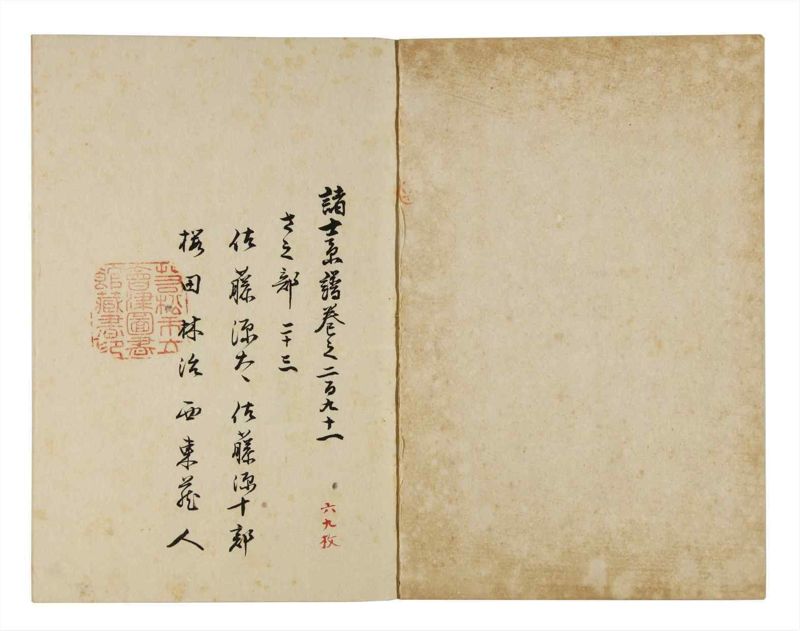 諸士系譜巻之二百九十一
さ之部 二十三
佐藤源太 佐藤源十郎
櫻田林治 西東蔵人
六九枚
若松市立
會津圖書
館藏書印